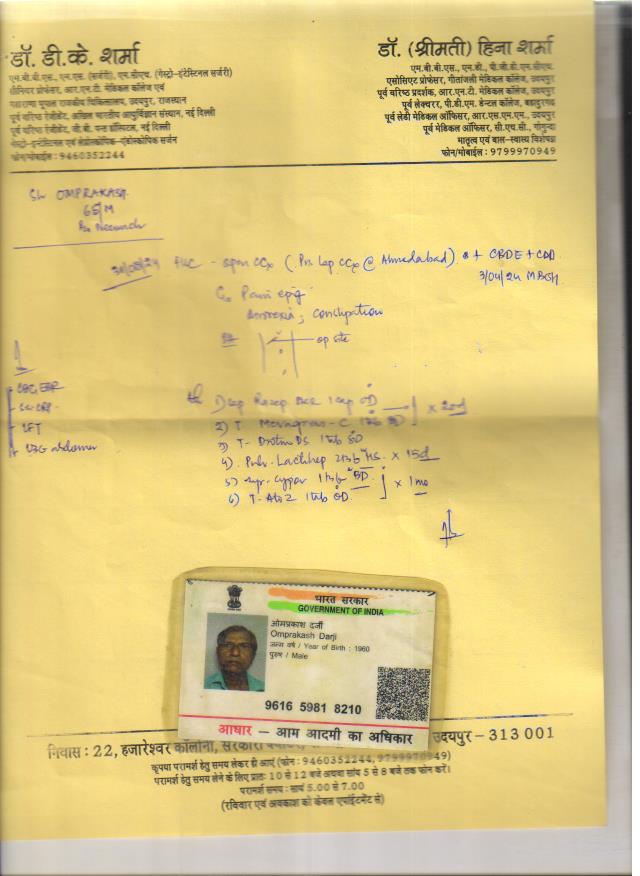 डॉ. डी.के. शर्मा
एम.बी.बी.एस., एम.एस. (सर्जरी), एम.सीएच. (गेस्ट्रो-इंटेस्टिनल सर्जरी)
सीनियर प्रोफेसर, आर.एन.टी. मेडिकल कॉलेज एवं
महाराणा भूपाल राजकीय चिकित्सालय, उदयपुर, राजस्थान
पूर्व वरिष्ठ रेजीडेंट, अखिल भारतीय आयुर्विज्ञान संस्थान, नई दिल्ली
पूर्व वरिष्ठ रेजीडेंट, जी.बी. पन्त हॉस्पिटल, नई दिल्ली
गेस्ट्रो-इन्टेस्टिनल एवं लेप्रोस्कोपिक-एंडोस्कोपिक सर्जन
फोन/मोबाईल : 9460352244
डॉ. (श्रीमती) हिना शर्मा
एम.बी.बी.एस., एम.डी., पी.जी.डी.एम.सीएच.
एसोसिएट प्रोफेसर, गीतांजली मेडिकल कॉलेज, उदयपुर
पूर्व वरिष्ठ प्रदर्शक, आर.एन.टी. मेडिकल कॉलेज, उदयपुर
पूर्व लेक्चरर, पी.डी.एम. डेन्टल कॉलेज, बहादुरगढ़
पूर्व लेडी मेडिकल ऑफिसर, आर.एस.एम.एम., उदयपुर
पूर्व मेडिकल ऑफिसर, सी.एच.सी., गोगुन्दा
मातृत्व एवं बाल-स्वास्थ्य विशेषज्ञ
फोन/मोबाईल : 9799970949
OMPRAKASH
65/M
open CCx (Pr. Lap CCx @ Ahmedabad) + CBDE + CDD
3/04/24 MBGH
Pain epig
Anorexia, constipation
op site
LFT
USG abdomen
1 cap OD
2) T. 1 tab x 20d
3) T- 1 tab
4) HS x 15d
5) BD x 1 mo
6) T- A to Z 1 tab OD
भारत सरकार
GOVERNMENT OF INDIA
ओमप्रकाश दर्जी
Omprakash Darji
जन्म वर्ष / Year of Birth : 1960
पुरुष / Male
9616 5981 8210
आधार – आम आदमी का अधिकार
निवास : 22, हजारेश्वर कॉलोनी, सरकारी उदयपुर – 313 001
कृपया परामर्श हेतु समय लेकर ही आएं (फोन : 9460352244, 9799970949)
परामर्श हेतु समय लेने के लिए प्रातः 10 से 12 बजे अथवा सांय 5 से 8 बजे तक फोन करें।
परामर्श समय : सायं 5.00 से 7.00
(रविवार एवं अवकाश को केवल एपॉईंटमेंट से)